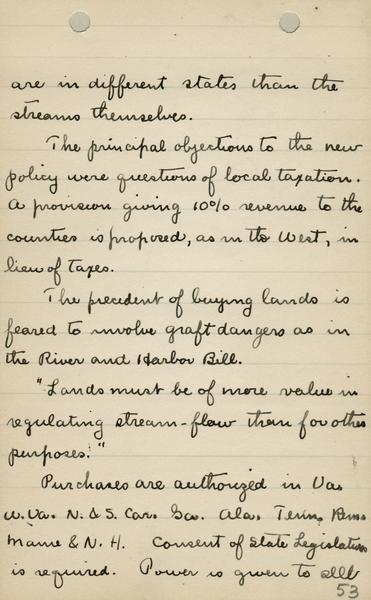 are in different states than the
streams themselves.
The principal objections to the new
policy were questions of local taxation.
A provision giving 10% revenue to the
counties is proposed, as in the West, in
lieu of taxes.
The precedent of buying lands is
feared to involve graft dangers as in
the River and Harbor Bill.
"Lands must be of more value in
regulating stream-flow than for other
purposes."
Purchases are authorized in Va.
W. Va. N. & S. Car. Ga. Ala. Tenn. Penn.
Maine & N. H. Consent of State Legislature
is required. Power is given to sell
53